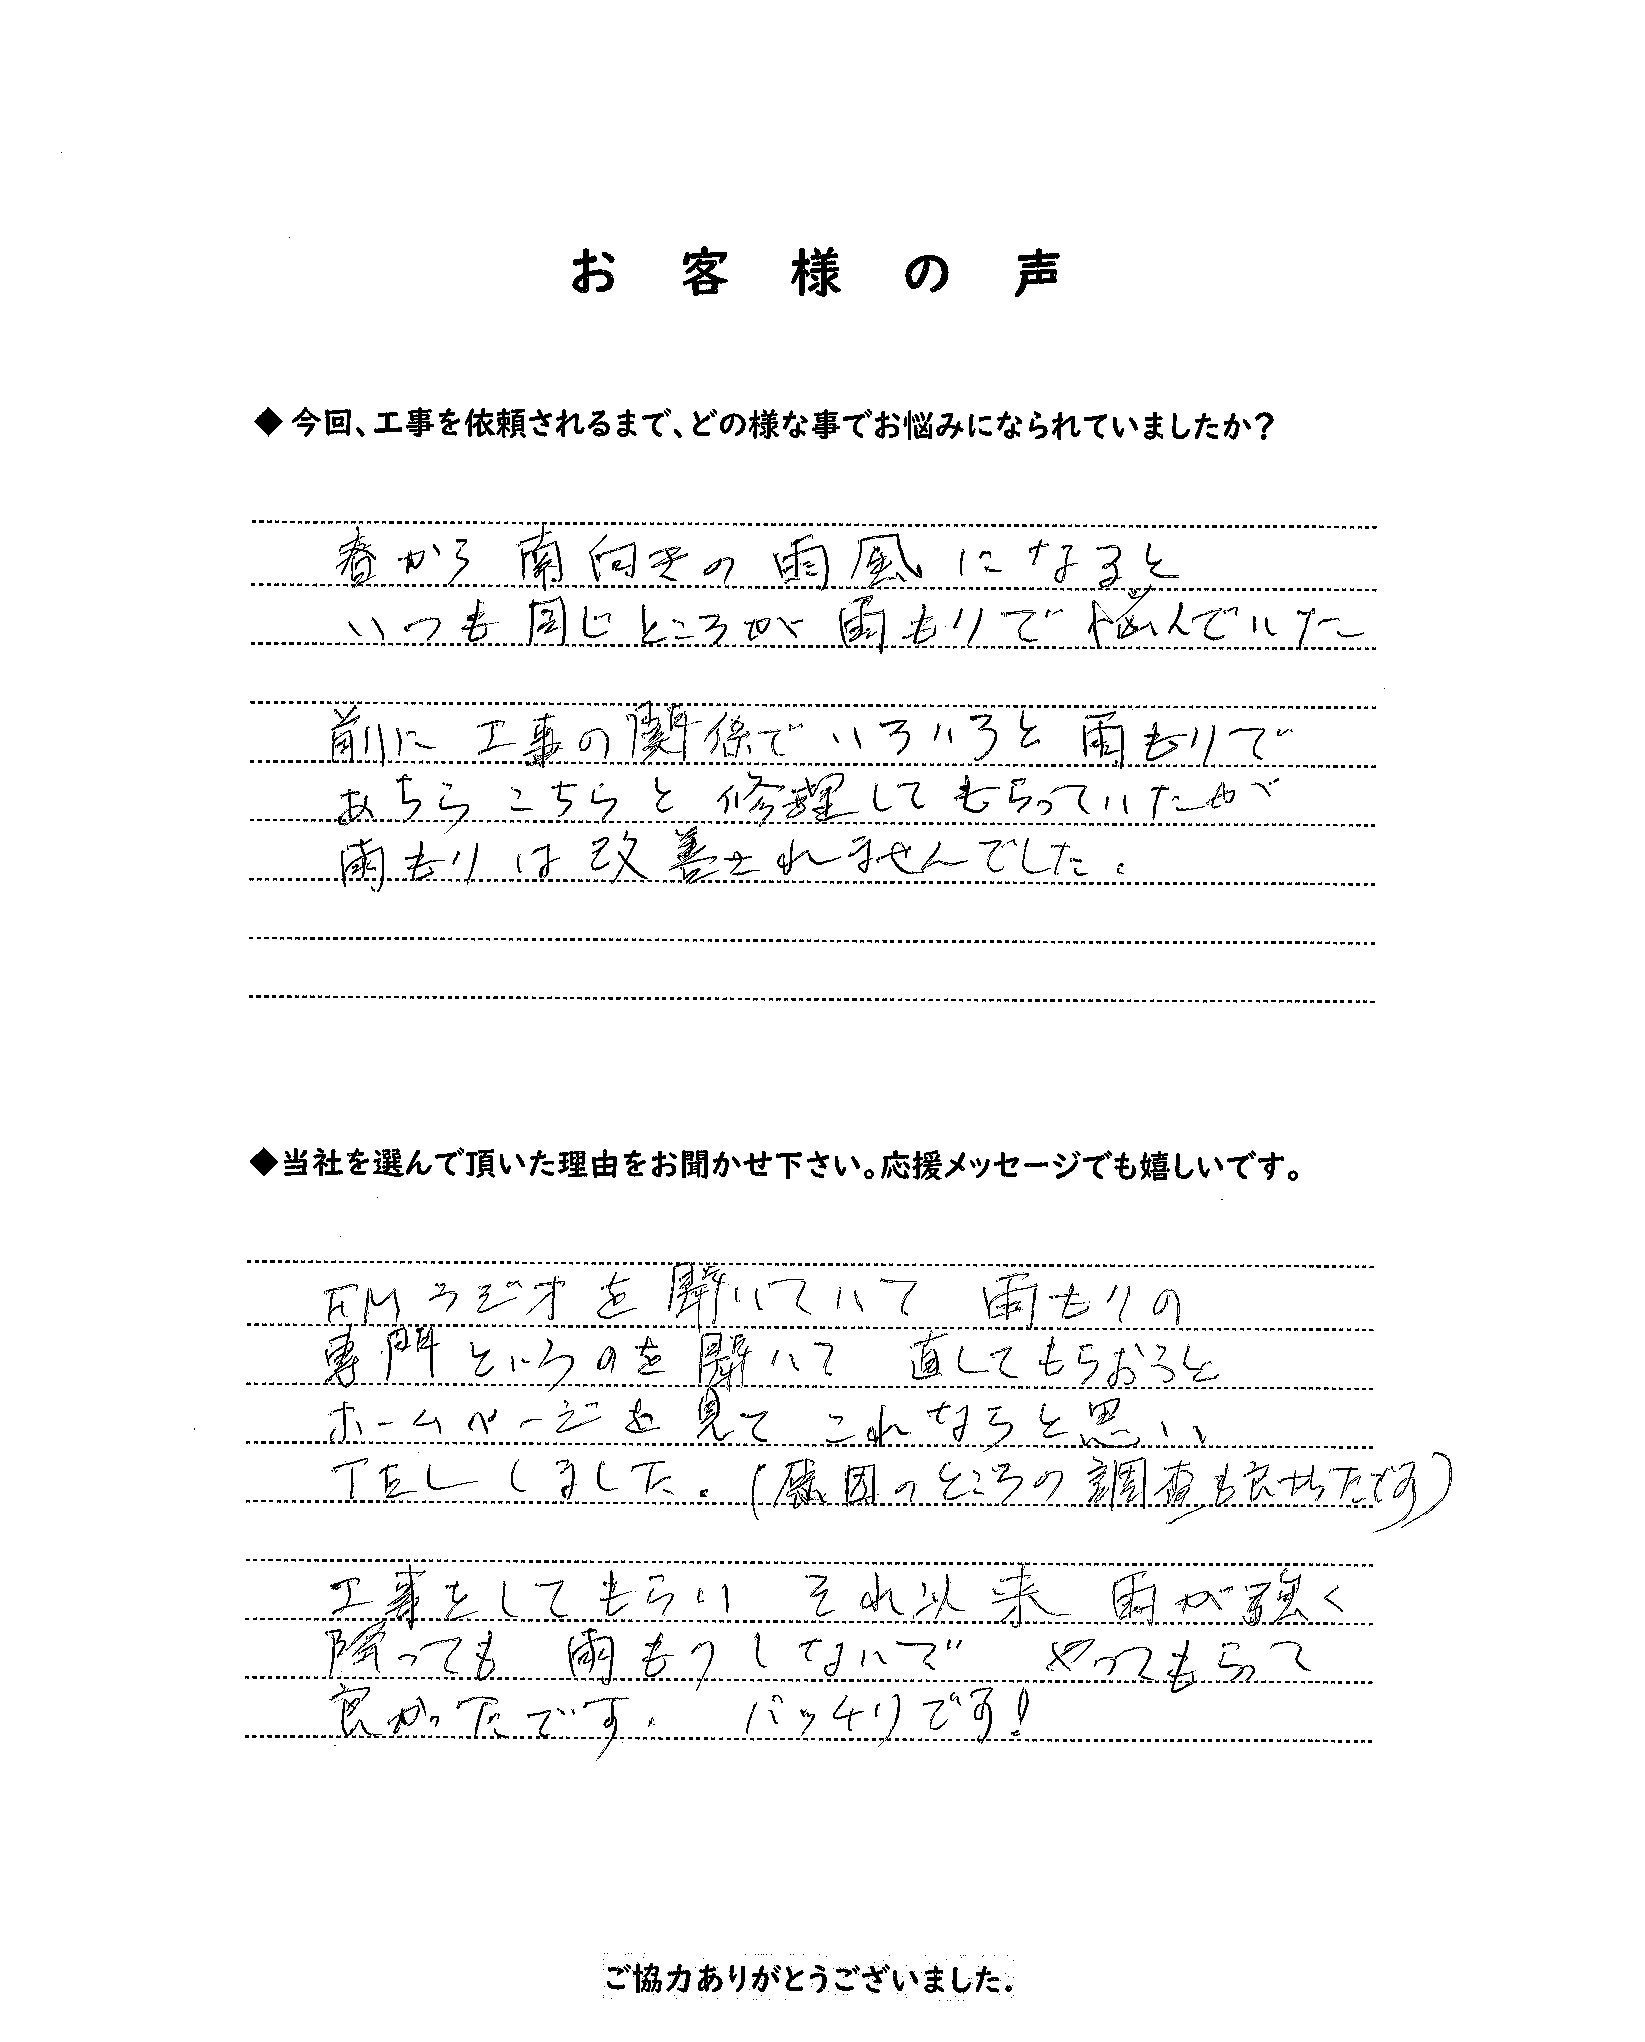 お客様の声
◆今回、工事を依頼されるまで、どの様な事でお悩みになられていましたか？
春から 南向きの 雨風になると
いつも同じところが雨もりで悩んでいた
前に 工事の関係でいろいろと 雨もりで
あちらこちらと 修理してもらっていたが
雨もりは改善されませんでした.
◆当社を選んで頂いた理由をお聞かせ下さい。応援メッセージでも嬉しいです。
FMラジオを聞いていて 雨もりの
専門というのを聞いて 直してもらおうと
ホームページを見て これならと思い
TELしました. (原因のところの調査も良かったです)
工事をしてもらい それ以来 雨が強く
降っても 雨もりしないで やってもらって
良かったです. バッチリです!
ご協力ありがとうございました.